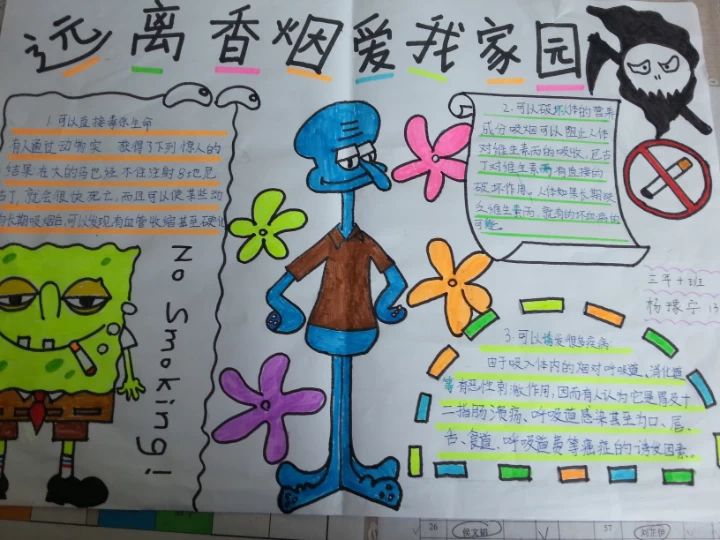 远离香烟爱我家园
1.可以直接毒杀生命
有人通过动物实 获得了下列惊人的
结果在大的马也经不住注射8滴尼
古丁,就会很快死亡,而且可以使某些动
物长期吸烟后,可以发现有血管收缩甚至硬化
No Smoking!
2.可以破坏人体的营养
成分吸烟可以阻止人体
对维生素丙的吸收,尼古
丁对维生素丙有直接的
破坏作用。人体如果长期缺
乏维生素丙,就有的坏血病的
可能。
三年十班
杨璨宁
3.可以诱发很多疾病
由于吸入体内的烟对呼吸道、消化道
等有恶性刺激作用,因而有人认为它是胃及十
二指肠溃疡、呼吸道感染甚至为口、唇、
舌、食道、呼吸道粪等癌症的诱发因素。
26
37